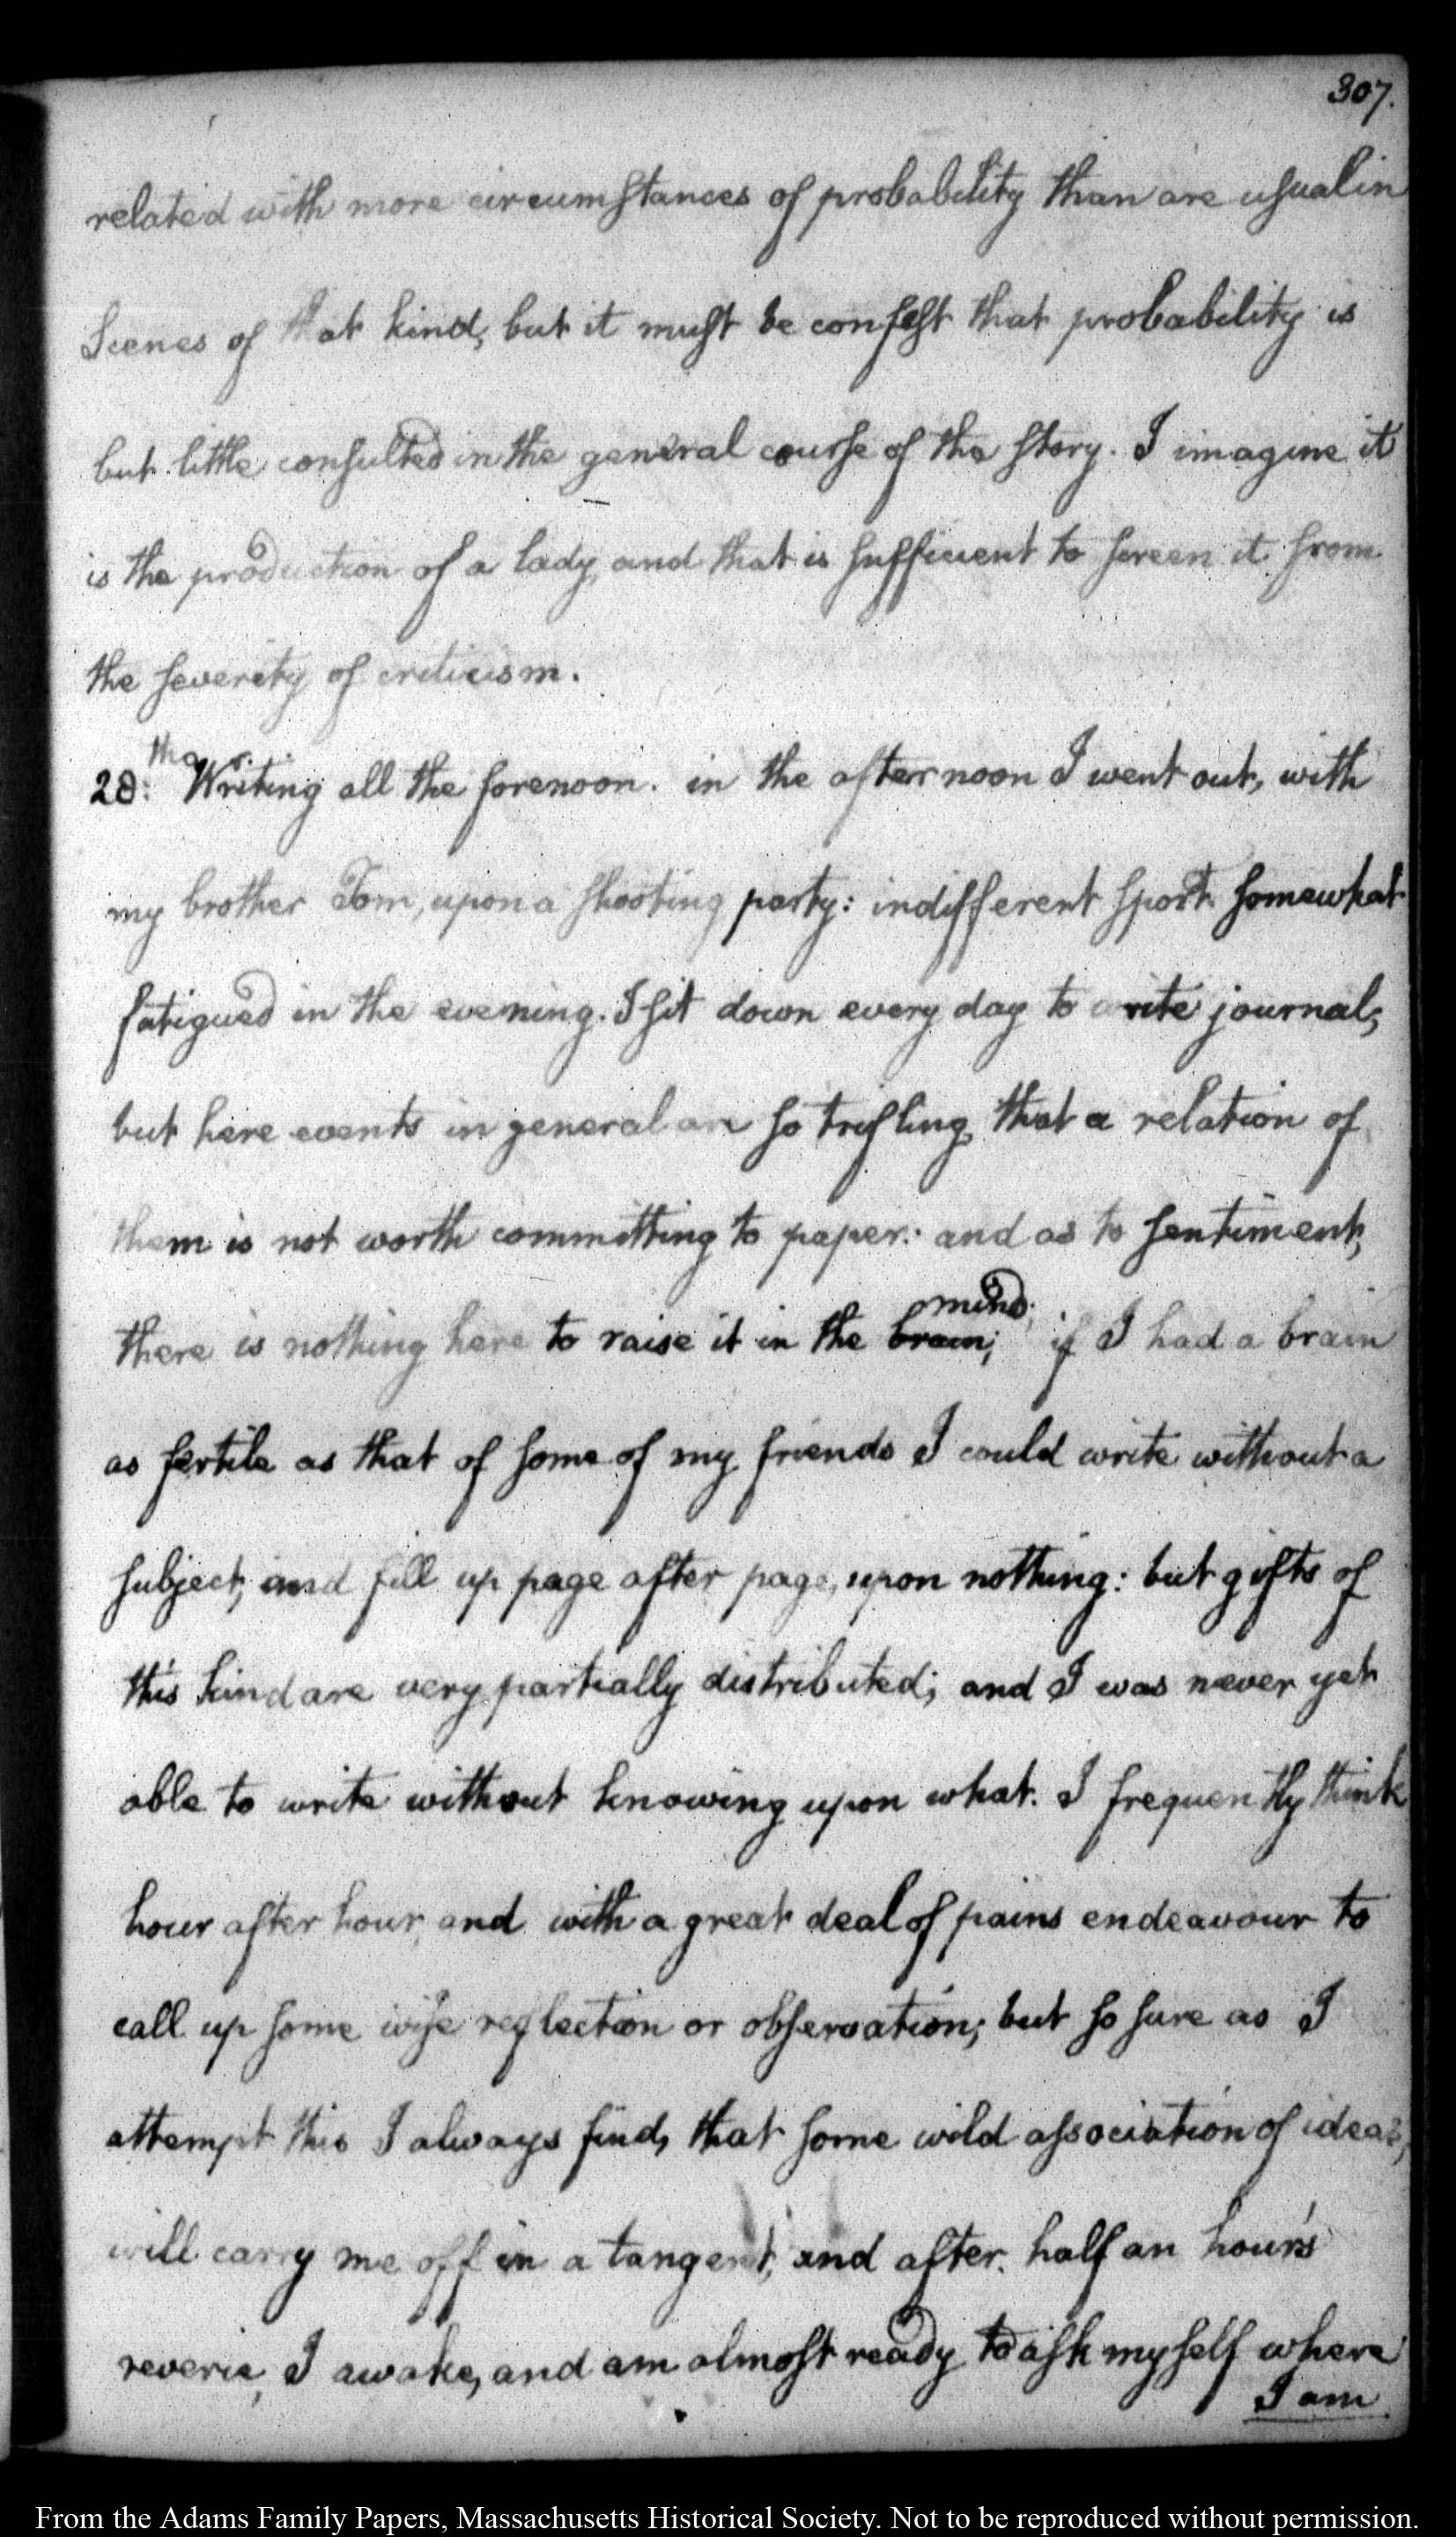 307.
related with more circumstances of probability than are usual in
Scenes of that kind, but it must be confest that probability is
but little consulted in the general course of the story. I imagine it
is the production of a lady, and that is sufficient to screen it from
the severity of criticism.
28th. Writing all the forenoon. in the afternoon I went out, with
my brother Tom, upon a shooting party: indifferent sport. somewhat
fatigued in the evening. I sit down every day to write journal;
but here events in general are so trifling, that a relation of
them is not worth committing to paper: and as to sentiment,
mind;
there is nothing here to raise it in the brain; if I had a brain
as fertile as that of some of my friends I could write without a
subject, and fill up page after page, upon nothing: but gifts of
this kind are very partially distributed; and I was never yet
able to write without knowing upon what. I frequently think
hour after hour, and with a great deal of pains endeavour to
call up some wise reflection or observation; but so sure as I
attempt this I always find, that some wild association of ideas,
will carry me off in a tangent, and after half an hour's
reverie, I awake, and am almost ready to ask myself where
I am
From the Adams Family Papers, Massachusetts Historical Society. Not to be reproduced without permission.